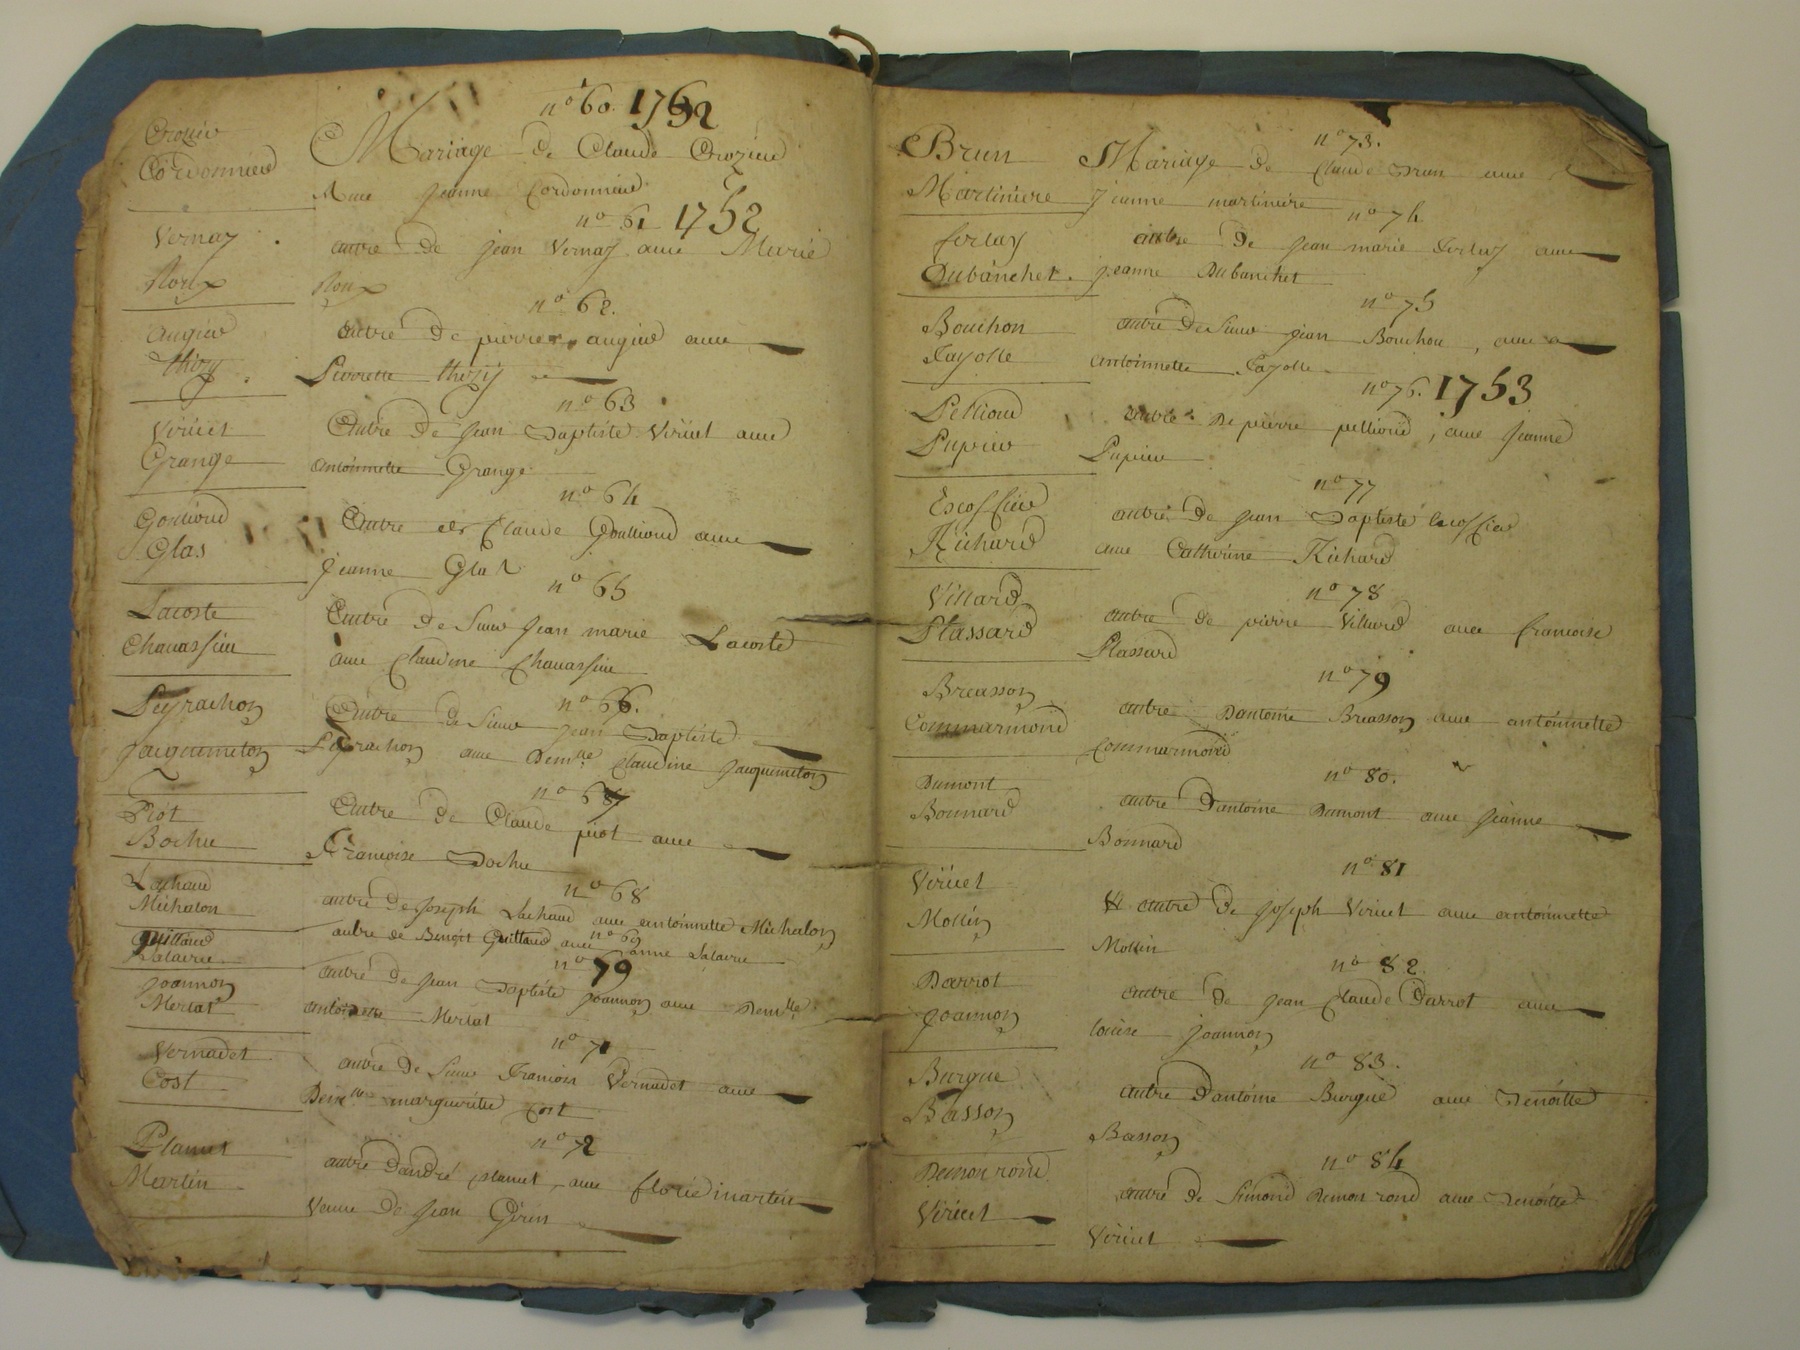 n° 60. 1752
Crozier
Cordonnier
Mariage de Claude Crozier
avec Jeanne Cordonnier
n° 61 1752
Vernay
Roux
autre de jean Vernay avec Marie
Roux
n° 62.
augier
thizy
autre de pierre augier avec
Pierrette thizy
n° 63
Viricel
Grange
Autre de jean Baptiste Viricel avec
antoinnette Grange
n° 64
Goullioud
Glas
Autre de Claude Goullioud avec
jeanne Glas
n° 65
Lacoste
Chavassieu
Autre de Sieur jean marie Lacoste
avec Claudine Chavassieu
n° 66.
Peyrachon
jacquemeton
Autre de Sieur jean Baptiste
Peyrachon avec Demlle Claudine jacquemeton
n° 67
Piot
Bochu
Autre de Claude piot avec
Francoise Bochu
n° 68
Lachaud
Michalon
autre de joseph Lachaud avec antoinnette Michalon
n° 69
Guillaud
autre de Benoit Guillaud avec anne
n° 70
joannon
Merlat
autre de jean Baptiste joannon avec Demlle
antoinette Merlat
n° 71
Vernadet
Cost
autre de Sieur Francois Vernadet avec
Demlle margueritte Cost
n° 72
Planus
Martin
autre d'andré planus, avec florie martin
veuve de jean Gérin
n° 73.
Brun
Martiniere
Mariage de Claude Brun avec
jeanne martiniere
n° 74
ferlay
Dubanchet.
autre de jean marie ferlay avec
jeanne Dubanchet
n° 75
Bouchon
Fayolle
autre de Sieur jean Bouchon, avec
antoinnette Fayolle
n° 76. 1753
Pellioud
Pupier
autre de pierre pellioud, avec jeanne
Pupier
n° 77
Escoffier
Richard
autre de jean Baptiste Escoffier
avec Catherine Richard
n° 78
Villard
Plassard
autre de pierre Villard avec francoise
Plassard
n° 79
Breasson
Commarmond
autre Dantoine Breasson avec antoinnette
Commarmond
n° 80.
Dumont
Bonnard
autre Dantoine Dumont avec jeanne
Bonnard
n° 81
Viricel
Mollin
autre de joseph Viricel avec antoinnette
Mollin
n° 82
Darrot
joannon
autre de jean Claude Darrot avec
louise joannon
n° 83.
Burgue
Basson
autre Dantoine Burgue avec Benoitte
Basson
n° 84
Demonrond
Viricel
autre de Simond Demonrond avec Benoitte
Viricel